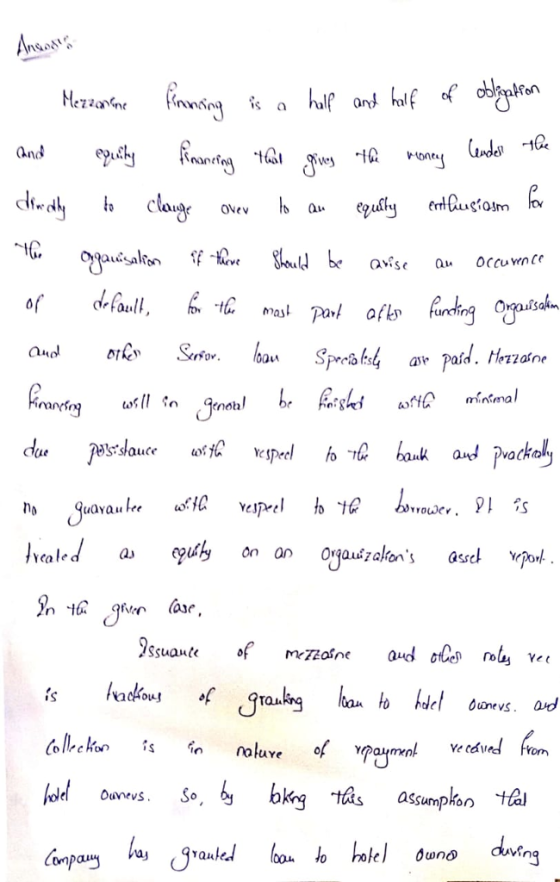 Answer:
Mezzanine financing is a half and half of obligation
and equity financing that gives the money lender the
directly to change over to an equity enthusiasm for
the organisation if there should be arise an occurence
of default, for the most part after funding Organisation
and other Senior. loan Specialists are paid. Mezzaine
financing will in general be finished with minimal
due persistance with respect to the bank and practically
no guarantee with respect to the borrower. It is
treated as equity on an Organization's asset report.
In the given case,
Issuance of mezzaine and other notes rec
is of granking loan to hotel owners. and
Collection is in nature of repayment received from
hotel owners. So, by taking this assumption that
Company has granted loan to hotel owner during